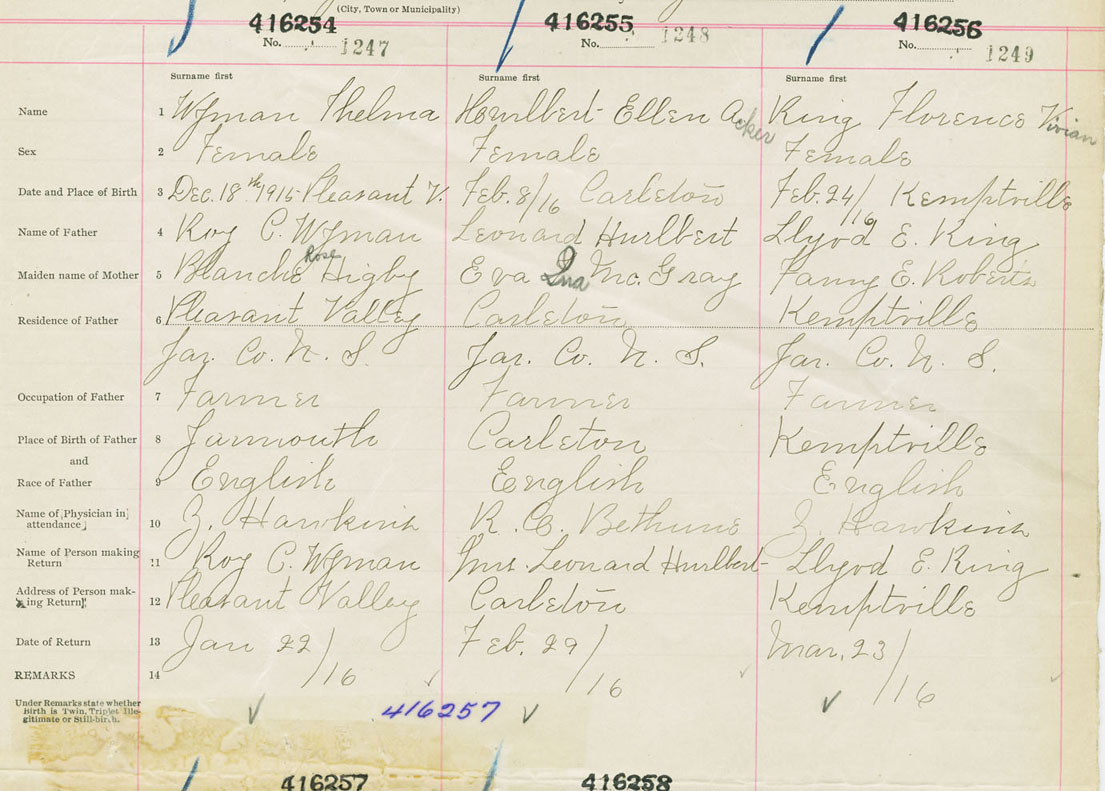 (City, Town or Municipality)
416254 416255 416256
No. 1247 No. 1248 No. 1249
Surname first Surname first Surname first
Name 1 Wyman Thelma Hurlbert Ellen Acker King Florence Vivian
Sex 2 Female Female Female
Date and Place of Birth 3 Dec. 18th 1915 Pleasant V. Feb. 8/16 Carleton Feb. 24/16 Kemptville
Name of Father 4 Roy C. Wyman Leonard Hurlbert Llyod E. King
Maiden name of Mother 5 Blanche Rose Higby Eva Ina Mc. Gray Fanny E. Roberts
Residence of Father 6 Pleasant Valley Carleton Kemptville
Yar. Co. N. S. Yar. Co. N. S. Yar. Co. N. S.
Occupation of Father 7 Farmer Farmer Farmer
Place of Birth of Father 8 Yarmouth Carleton Kemptville
and
Race of Father 9 English English English
Name of Physician in attendance 10 Z. Hawkins R. C. Bethune Z Hawkins
Name of Person making Return 11 Roy C. Wyman Mrs. Leonard Hurlbert Llyod E. King
Address of Person making Return 12 Pleasant Valley Carleton Kemptville
Date of Return 13 Jan 22/16 Feb. 29/16 Mar. 23/16
REMARKS 14
Under Remarks state whether
Birth is Twin, Triplet Ille-
gitimate or Still-birth.
416257
416257 416258